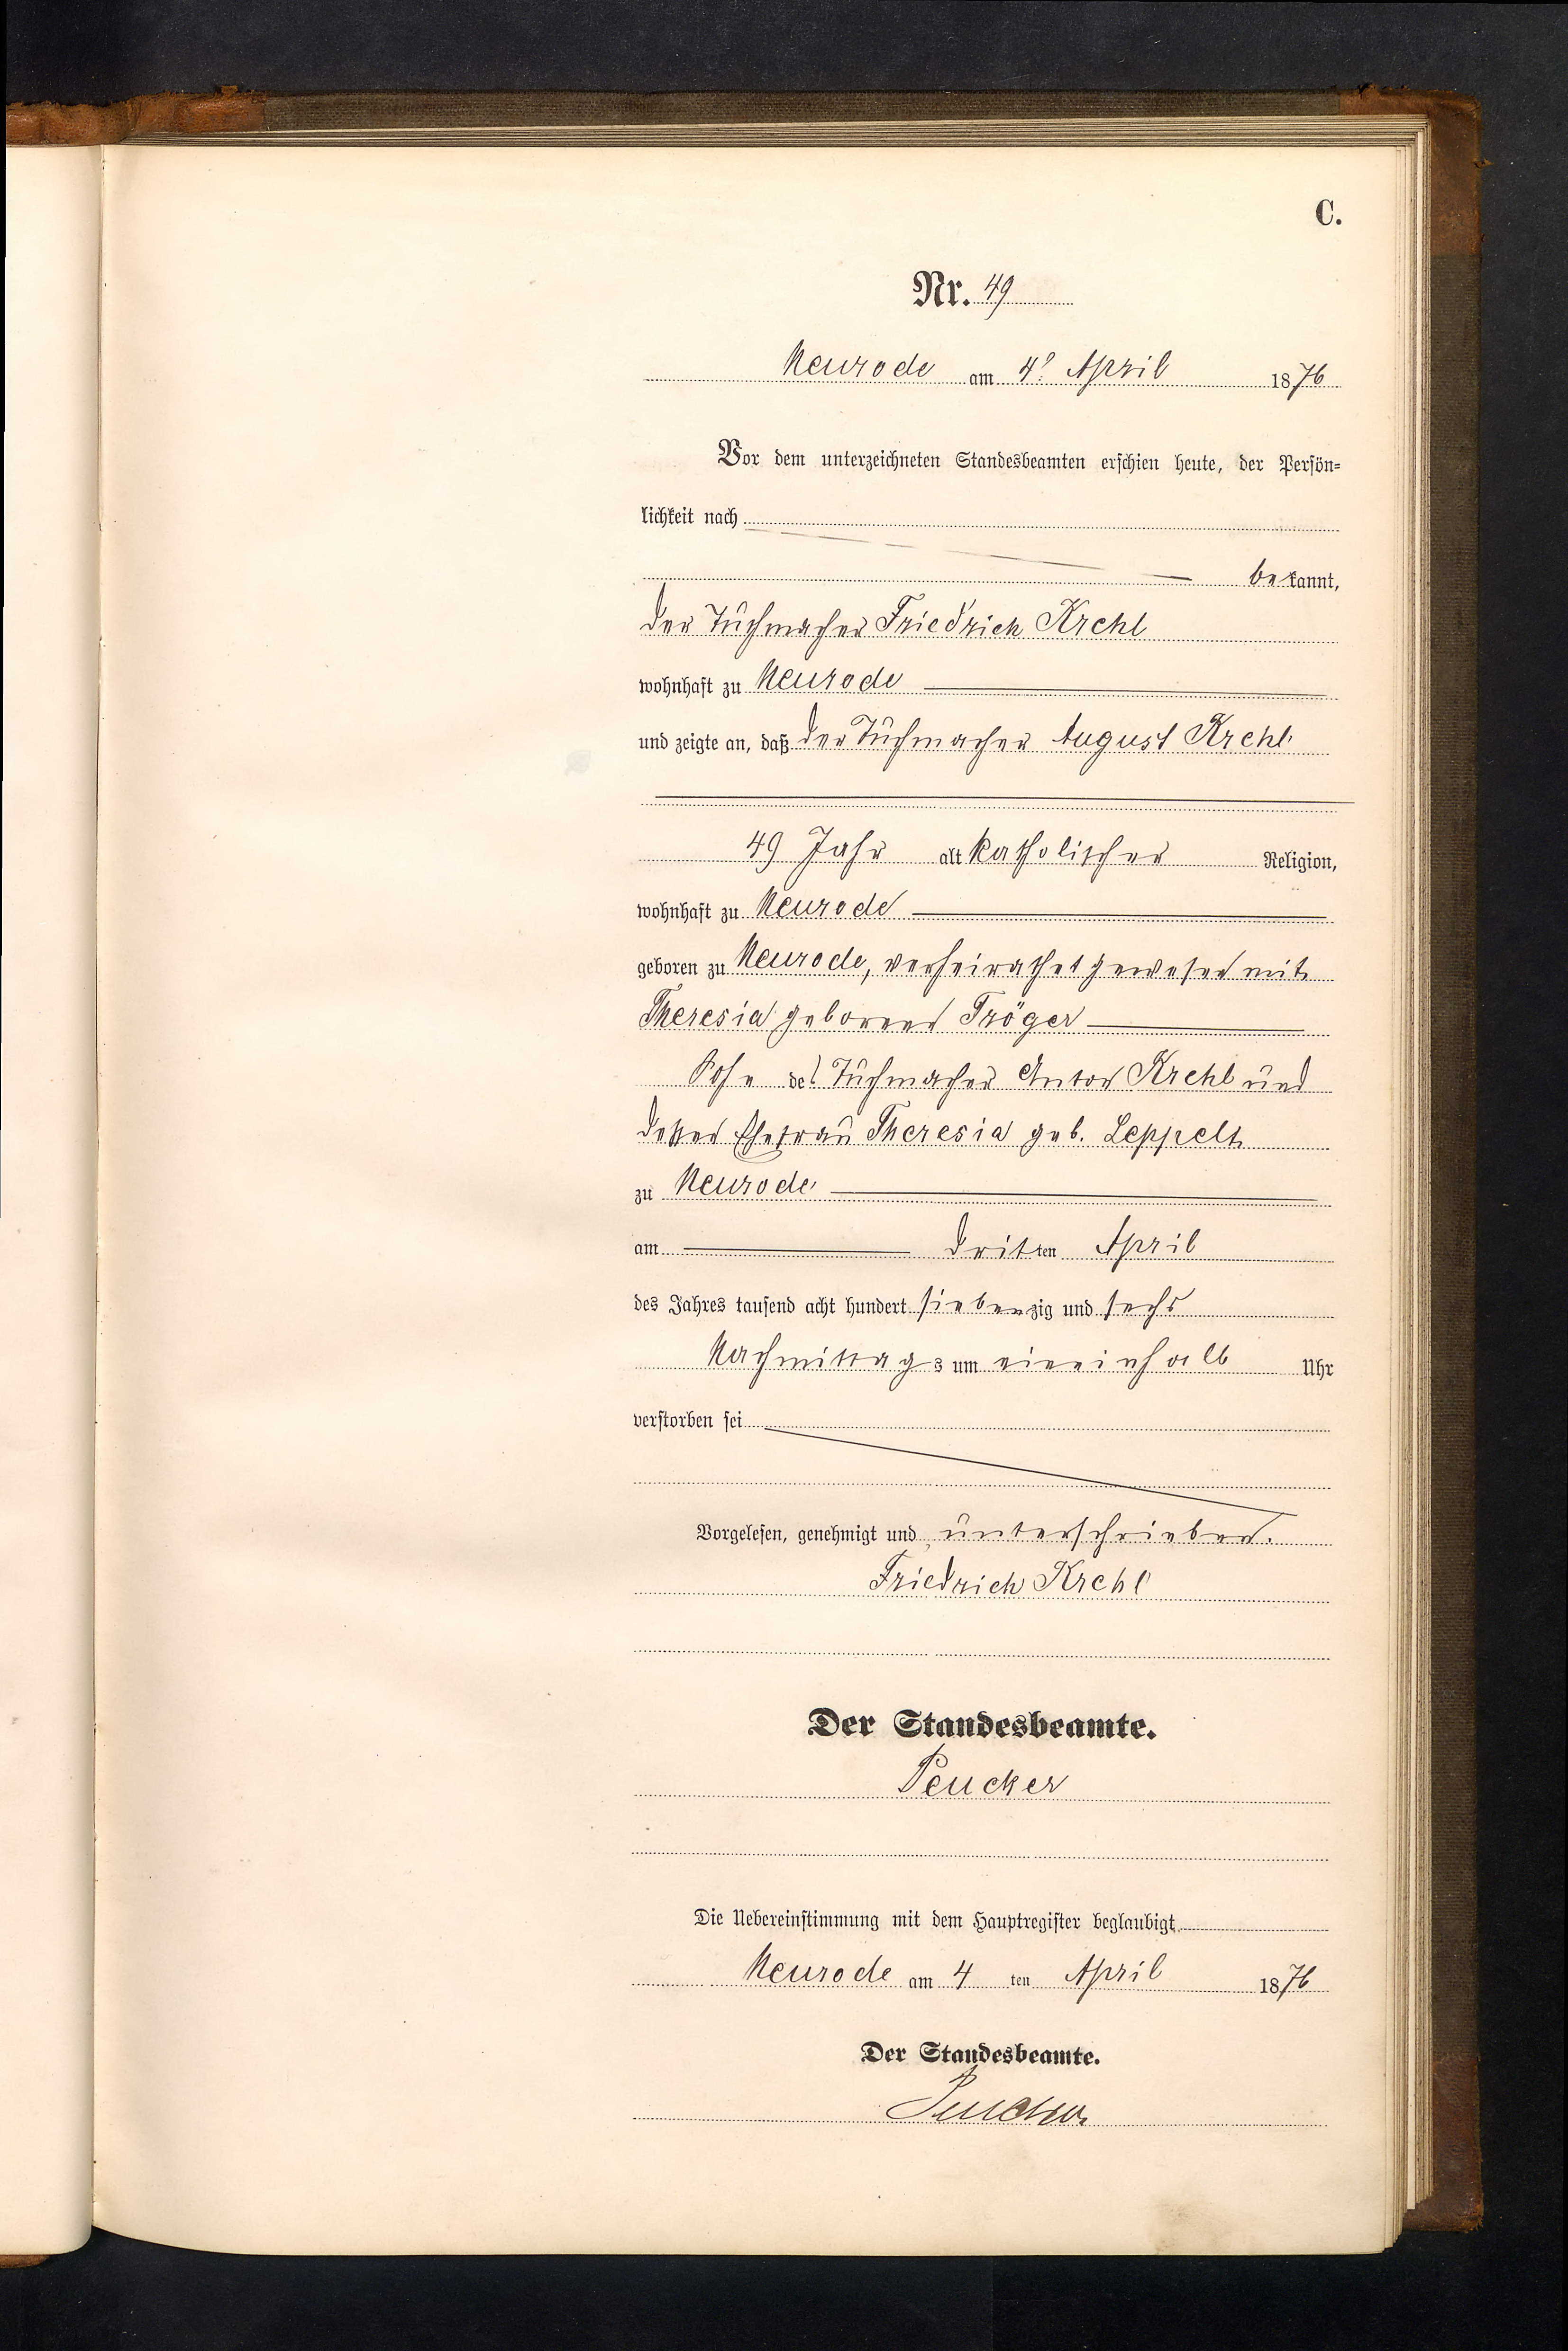 C.
Nr. 49
Neurode am 4t April 1876
Vor dem unterzeichneten Standesbeamten erschien heute, der Persön=
lichkeit nach
bekannt,
der Tuchmacher Friedrich Krehl
wohnhaft zu Neurode
und zeigte an, daß der Tuchmacher August Krehl
49 Jahr alt katholischer Religion,
wohnhaft zu Neurode
geboren zu Neurode, verheirathet gewesen mit
Theresia geborenen Tröger
Sohn des Tuchmacher Anton Krehl und
dessen Ehefrau Theresia geb. Leppelt
zu Neurode
am dritten April
des Jahres tausend acht hundert siebenzig und sechs
Nachmittags um eineinhalb Uhr
verstorben sei
Vorgelesen, genehmigt und unterschrieben.
Friedrich Krehl
Der Standesbeamte.
Peucker
Die Uebereinstimmung mit dem Hauptregister beglaubigt
Neurode am 4 ten April 1876
Der Standesbeamte.
Peucker